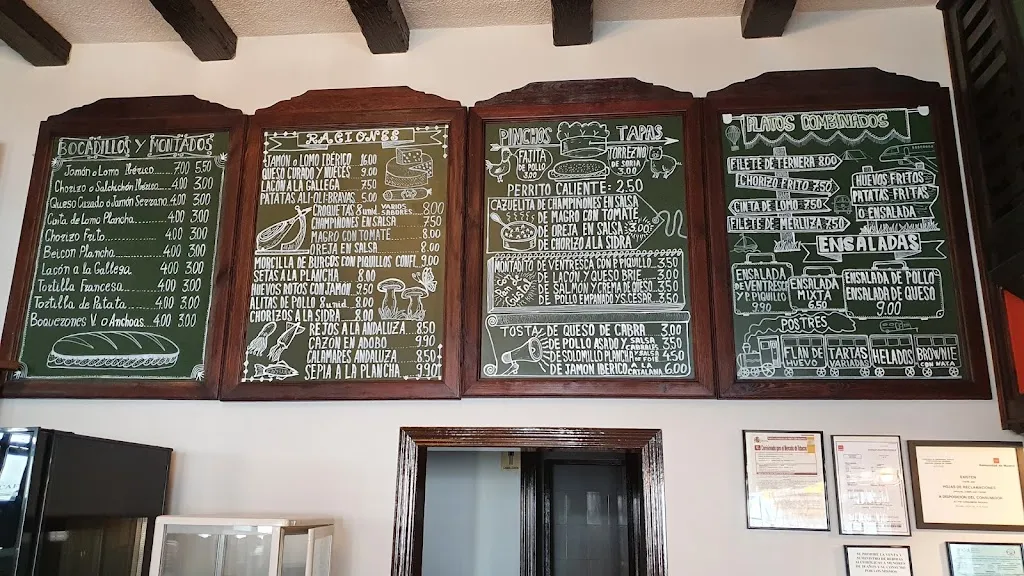 BOCADILLOS Y MONTADOS
Jamón o Lomo Ibérico 7.00 5.50
Chorizo o Salchichón Ibérico 4.00 3.00
Queso Curado o Jamón Serrano 4.00 3.00
Cinta de Lomo Plancha 4.00 3.00
Chorizo Frito 4.00 3.00
Beicon Plancha 4.00 3.00
Lacón a la Gallega 4.00 3.00
Tortilla Francesa 4.00 3.00
Tortilla de Patata 4.00 3.00
Boquerones V. o Anchoas 4.00 3.00
RACIONES
JAMÓN o LOMO IBÉRICO 16.00
QUESO CURADO y NUECES 9.00
LACÓN A LA GALLEGA 7.50
PATATAS ALI-OLI-BRAVAS 5.00
CROQUETAS 8 unid. VARIOS SABORES 8.00
CHAMPIÑONES EN SALSA 7.50
MAGRO CON TOMATE 8.00
OREJA EN SALSA 8.00
MORCILLA DE BURGOS CON PIQUILLOS CONF. 9.00
SETAS A LA PLANCHA 8.00
HUEVOS ROTOS CON JAMÓN 9.50
ALITAS DE POLLO 8 unid. 8.00
CHORIZOS A LA SIDRA 8.00
REJOS A LA ANDALUZA 8.50
CAZÓN EN ADOBO 9.90
CALAMARES ANDALUZA 8.50
SEPIA A LA PLANCHA 9.90
PINCHOS TAPAS
FAJITA DE POLLO 3.00
TORREZNO DE SORIA 3.00
PERRITO CALIENTE: 2.50
CAZUELITA DE CHAMPIÑONES EN SALSA
DE MAGRO CON TOMATE
DE OREJA EN SALSA 3.00
DE CHORIZO A LA SIDRA
MONTADITO DE VENTRESCA CON P. PIQUILLO 3.50
DE LACÓN Y QUESO BRIE 3.50
DE SALMÓN Y CREMA DE QUESO 3.50
DE POLLO EMPANADO Y S. CESAR 3.50
Con pan de Cristal
TOSTA DE QUESO DE CABRA 3.00
DE POLLO ASADO Y SALSA 3.50
DE SOLOMILLO PLANCHA Y SALSA 4.50
DE JAMÓN IBERICO A LA CATALANA 6.00
PLATOS COMBINADOS
FILETE DE TERNERA 8.00
CHORIZO FRITO 7.50
CINTA DE LOMO 7.50
FILETE DE MERLUZA 7.50
HUEVOS FRITOS
PATATAS FRITAS
O ENSALADA
ENSALADAS
ENSALADA DE VENTRESCA Y P. PIQUILLO 9.90
ENSALADA MIXTA 6.50
ENSALADA DE POLLO
ENSALADA DE QUESO
9.00
POSTRES
FLAN DE HUEVO
TARTAS VARIADAS
HELADOS
BROWNIE CON NATA
HOJAS DE RECLAMACIONES
A DISPOSICION DEL CONSUMIDOR